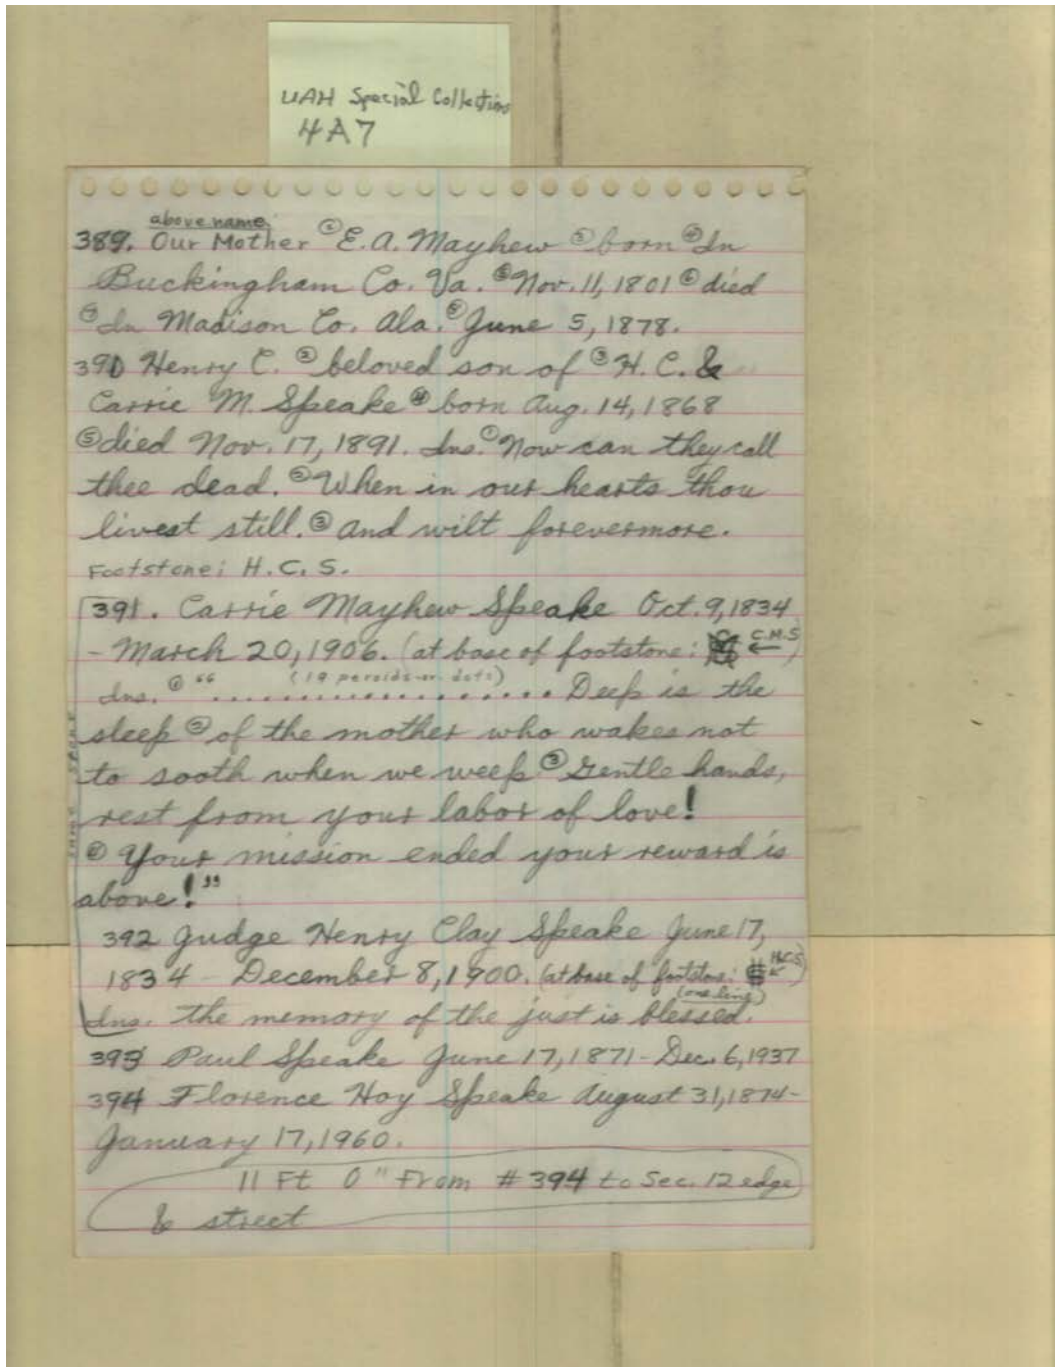 UAH Special Collections
4A7
above name
389. Our Mother ① E. A. Mayhew ③ born ④ In
Buckingham Co. Va. ⑤ Nov. 11, 1801 ⑥ died
⑦ In Madison Co. Ala. ⑧ June 5, 1878.
390 Henry C. ② beloved son of ③ H. C. &
Carrie M. Speake ④ born Aug. 14, 1868
⑤ died Nov. 17, 1891. Ins. ① Now can they call
thee dead. ② When in our hearts thou
livest still. ③ and wilt forevermore.
Footstone: H. C. S.
391. Carrie Mayhew Speake Oct. 9, 1834
- March 20, 1906. (at base of footstone: ← C.M.S)
(19 peroids or dots)
Ins. ① “ ................... Deep is the
sleep ② of the mother who wakes not
to sooth when we weep ③ Gentle hands,
rest from your labor of love!
④ Your mission ended your reward is
above!”
same stone
392 Judge Henry Clay Speake June 17,
1834 - December 8, 1900. (at base of footstone: H.C.S)
(one line)
Ins. the memory of the just is blessed.
393 Paul Speake June 17, 1871 - Dec. 6, 1937
394 Florence Hoy Speake August 31, 1874 -
January 17, 1960.
11 Ft 0" From # 394 to Sec. 12 edge
& street